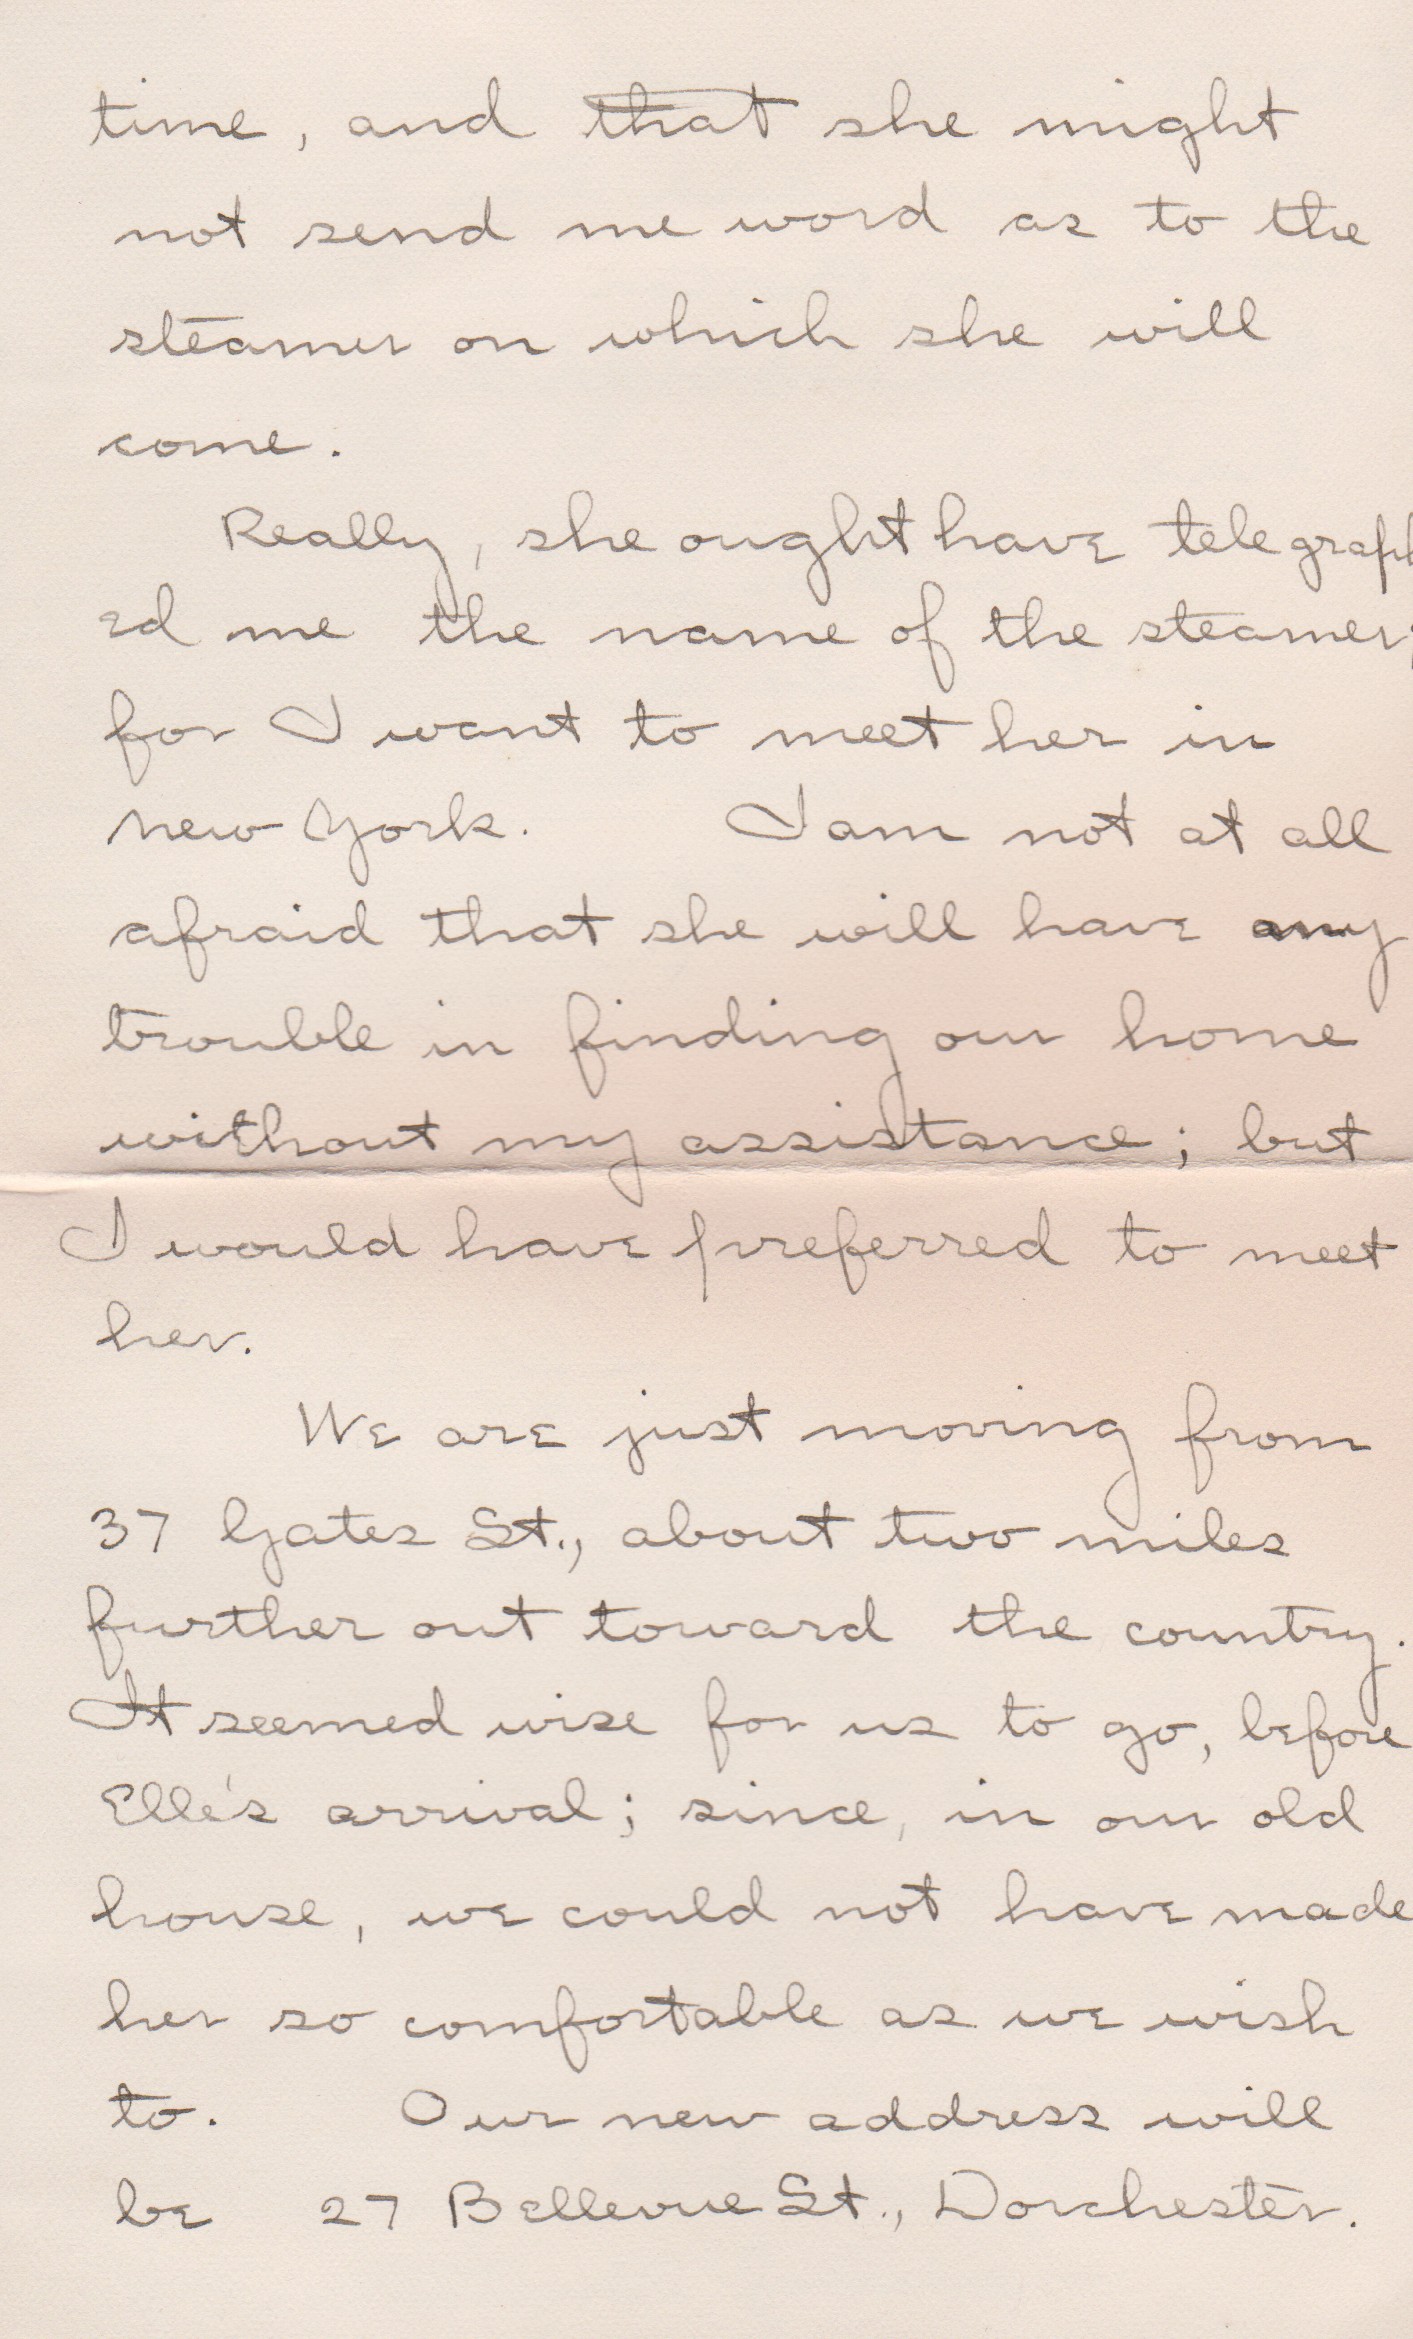 time, and that she might
not send me word as to the
steamer on which she will
come.
Really, she ought have telegraph
ed me the name of the steamer;
for I want to meet her in
New York. I am not at all
afraid that she will have any
trouble in finding our home
without my assistance; but
I would have preferred to meet
her.
We are just moving from
37 Gates St., about two miles
further out toward the country.
It seemed wise for us to go, before
Elle's arrival; since, in our old
house, we could not have made
her so comfortable as we wish
to. Our new address will
be 27 Bellevue St., Dorchester.